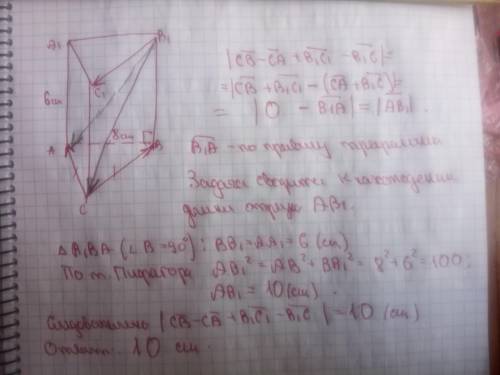 A₁
B₁
C₁
6см
8см
A
B
C
|C̅B̅ - C̅A̅ + B̅₁C̅₁ - B̅₁C̅| =
= |C̅B̅ + B̅₁C̅₁ - (C̅A̅ + B̅₁C̅)| =
= | 0 - B̅₁A̅ | = |AB₁|.
B̅₁A̅ - по правилу
Задача сводится к нахождению
длины отрезка AB₁.
Δ B₁BA (∠B = 90°): BB₁ = AA₁ = 6 (см)
По т. Пифагора AB₁² = AB² + BB₁² = 8² + 6² = 100;
AB₁ = 10 (см).
Следовательно | C̅B̅ - C̅A̅ + B̅₁C̅₁ - B̅₁C̅ | = 10 (см)
Ответ: 10 см.